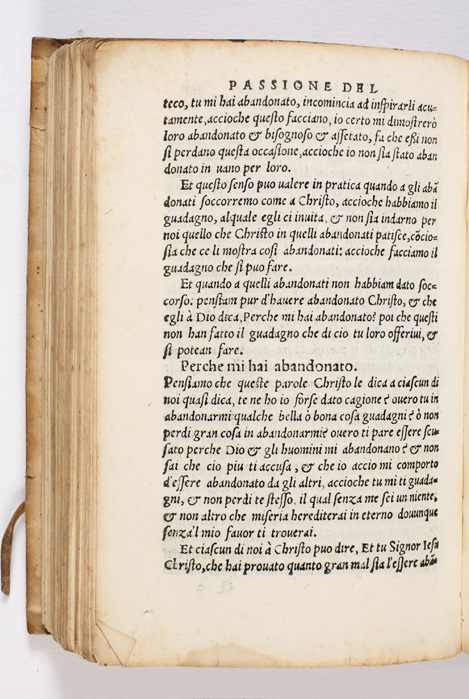 PASSIONE DEL
teco, tu mi hai abandonato, incomincia ad inspirarli acu-
tamente, accioche questo facciano, io certo mi dimostrerò
loro abandonato & bisognoso & assetato, fa che essi non
si perdano questa occasione, accioche io non sia stato aban
donato in uano per loro.
Et questo senso puo ualere in pratica quando a gli abã
donati soccorremo come a Christo, accioche habbiamo il
guadagno, alquale egli ci inuita, & non sia indarno per
noi quello che Christo in quelli abandonati patisce, cõcio-
sia che ce li mostra così abandonati: accioche facciamo il
guadagno che si puo fare.
Et quando a quelli abandonati non habbiam dato soc-
corso: pensiam pur d'hauere abandonato Christo, & che
egli à Dio dica, Perche mi hai abandonato? poi che questi
non han fatto il guadagno che di cio tu loro offeriui, &
si potean fare.
Perche mi hai abandonato.
Pensiamo che queste parole Christo le dica a ciascun di
noi quasi dica, te ne ho io forse dato cagione? ouero tu in
abandonarmi qualche bella ò bona cosa guadagni? ò non
perdi gran cosa in abandonarmi? ouero ti pare essere scu-
sato perche Dio & gli huomini mi abandonano? & non
sai che cio piu ti accusa, & che io accio mi comporto
d'essere abandonato da gli altri, accioche tu mi ti guada-
gni, & non perdi te stesso, il qual senza me sei un niente,
& non altro che miseria herediterai in eterno douunque
senza'l mio fauor ti trouerai.
Et ciascun di noi à Christo puo dire, Et tu Signor Iesu
Christo, che hai prouato quanto gran mal sia l'essere abãn